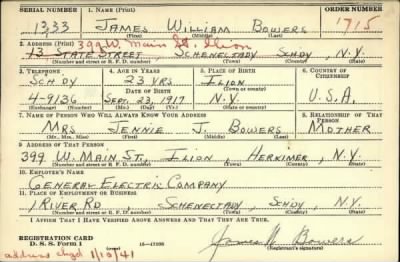 SERIAL NUMBER 1. NAME (Print) ORDER NUMBER
1333 JAMES WILLIAM BOWERS 1715
(First) (Middle) (Last)
2. ADDRESS (Print) 399 W. Main St. Ilion
43 STATE STREET, SCHENECTADY SCHDY, N.Y.
(Number and street or R. F. D. number) (Town) (County) (State)
3. TELEPHONE 4. AGE IN YEARS 5. PLACE OF BIRTH 6. COUNTRY OF CITIZENSHIP
SCHDY 23 YRS ILION
DATE OF BIRTH (Town or county)
4-9136 SEPT. 23, 1917 N.Y. U.S.A.
(Exchange) (Number) (Mo.) (Day) (Yr.) (State or country)
7. NAME OF PERSON WHO WILL ALWAYS KNOW YOUR ADDRESS 8. RELATIONSHIP OF THAT PERSON
MRS JENNIE J. BOWERS MOTHER
(Mr., Mrs., Miss) (First) (Middle) (Last)
9. ADDRESS OF THAT PERSON
399 W. MAIN ST., ILION HERKIMER, N.Y.
(Number and street or R. F. D. number) (Town) (County) (State)
10. EMPLOYER'S NAME
GENERAL ELECTRIC COMPANY
11. PLACE OF EMPLOYMENT OR BUSINESS
1 RIVER RD, SCHENECTADY, SCHDY, N.Y.
(Number and street or R. F. D. number) (Town) (County) (State)
I AFFIRM THAT I HAVE VERIFIED ABOVE ANSWERS AND THAT THEY ARE TRUE.
REGISTRATION CARD
D. S. S. Form 1 James W Bowers
(Registrant's signature)
address chgd 1/10/41